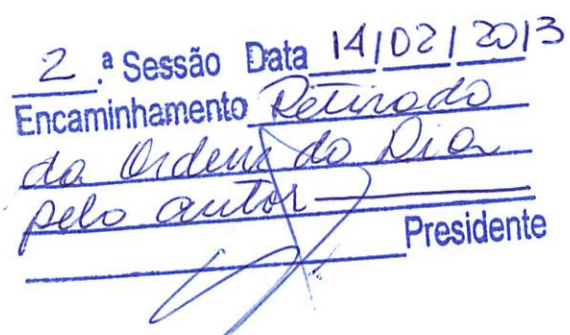 2.ª Sessão Data 14/02/2013
Encaminhamento Retirado
da Ordem do Dia
pelo autor
Presidente